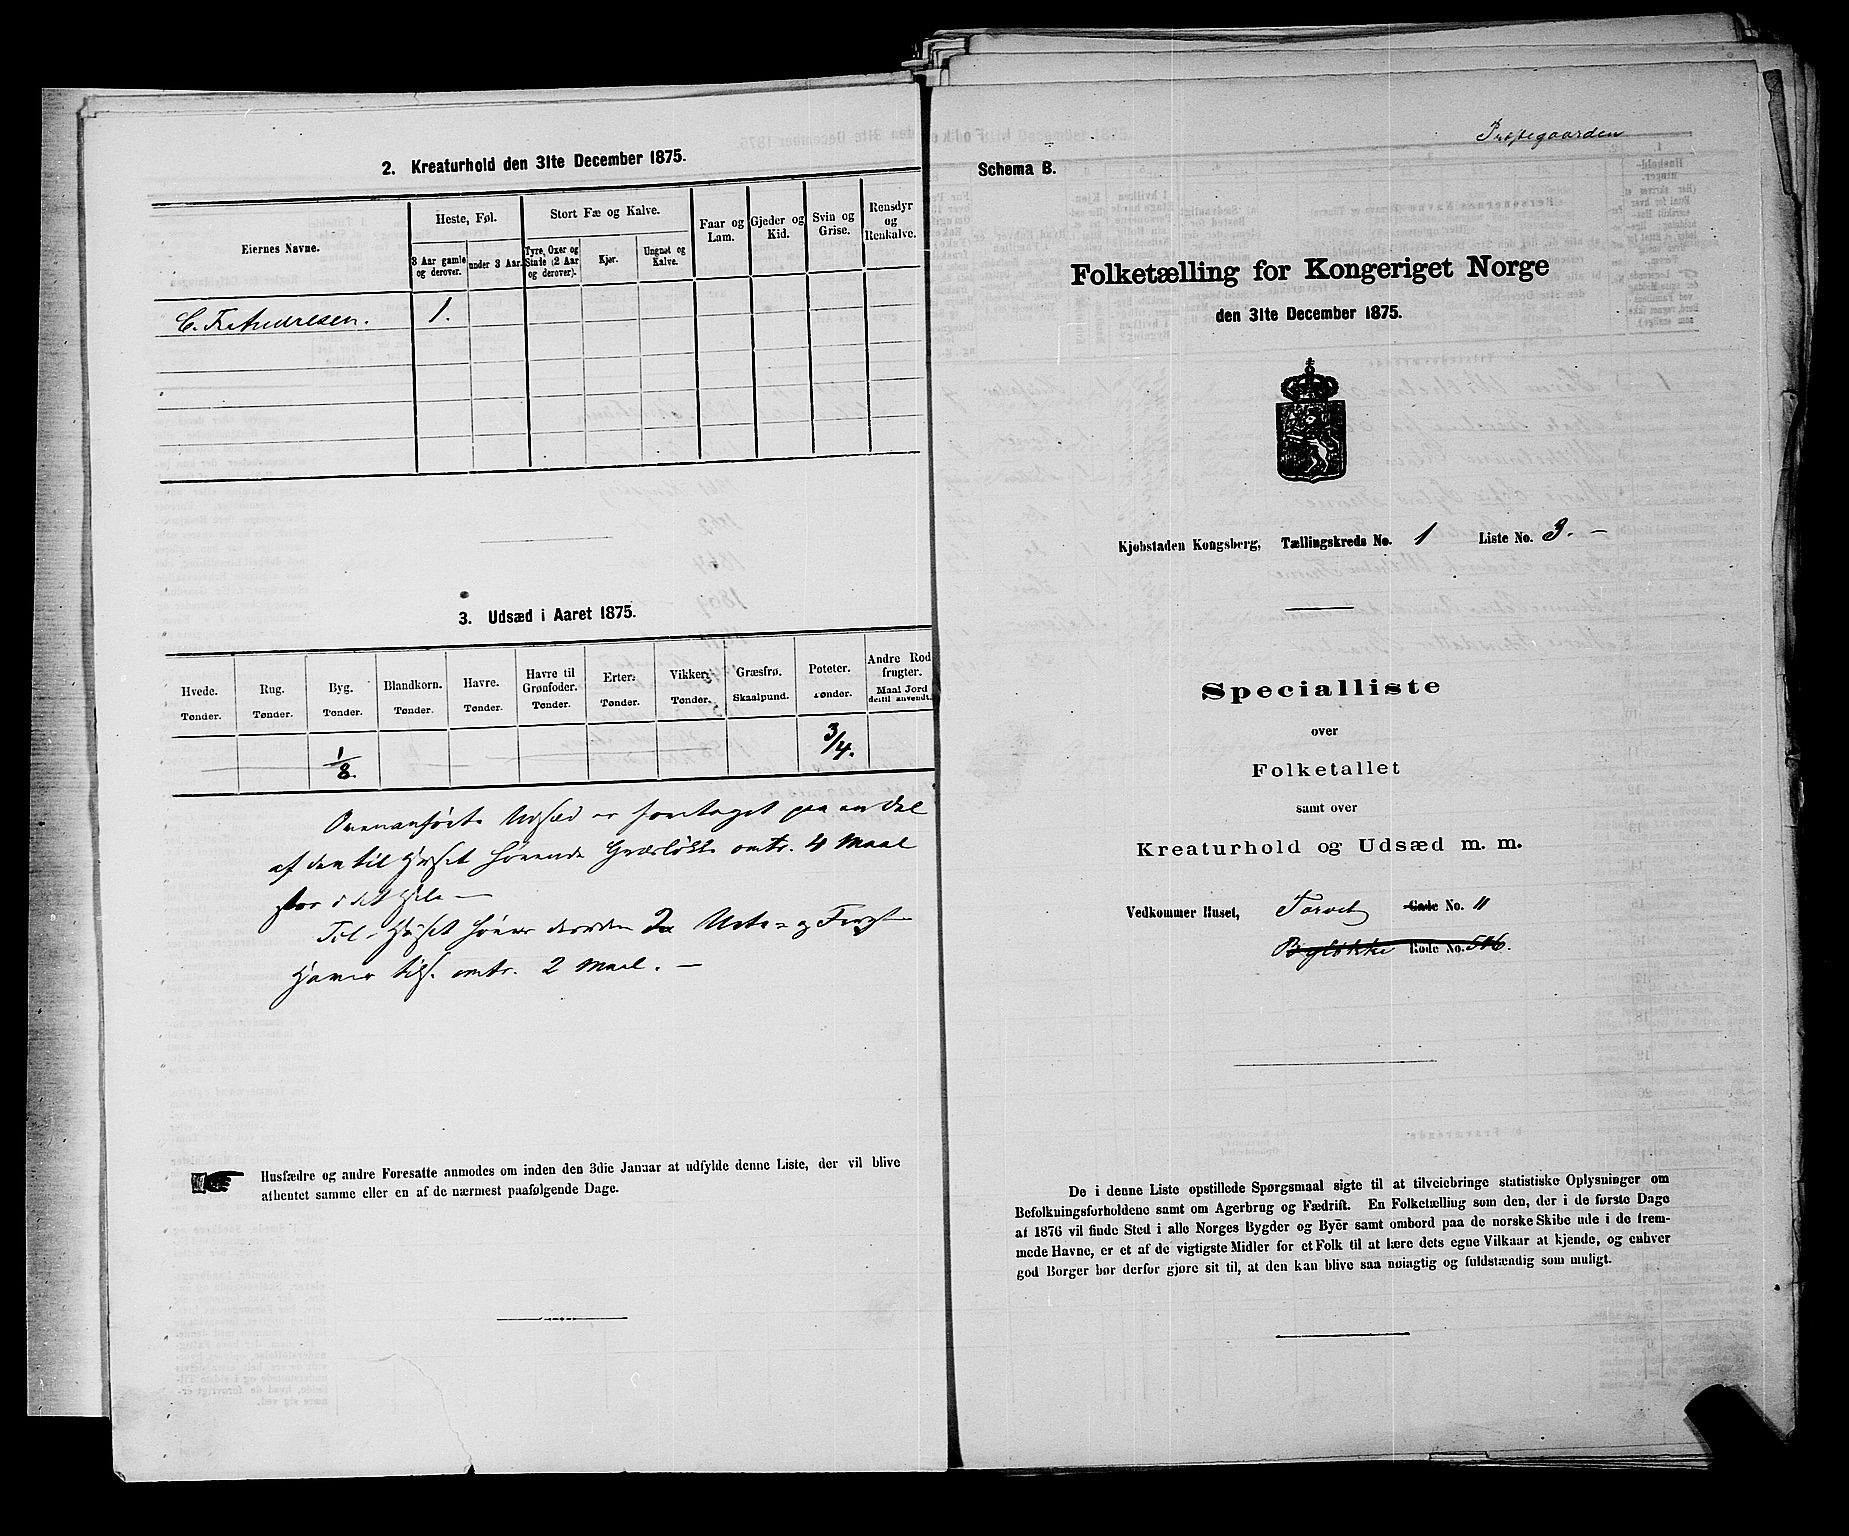 2. Kreaturhold den 31te December 1875.
Eiernes Navne.
Heste, Føl.
Stort Fæ og Kalve.
Faar og Lam.
Gjeder og Kid.
Svin og Grise.
Rensdyr og Renkalve.
3 Aar gamle og derover.
under 3 Aar.
Tyre, Oxer og Stude (2 Aar og derover).
Kjør.
Ungnøt og Kalve.
C. Fr Andresen. 1.
3. Udsæd i Aaret 1875.
Hvede. Rug. Byg. Blandkorn. Havre. Havre til Grønfoder. Erter. Vikker. Græsfrø. Poteter. Andre Rodfrugter.
Tønder. Tønder. Tønder. Tønder. Tønder. Tønder. Tønder. Tønder. Skaalpund. Tønder. Maal Jord dertil anvendt.
1/8. 3/4.
Ovenanførte Udsæd er foretaget paa en Del
af den til Huset hørende Græsløkke omtr. 4 Maal
stor i det Hele —
Til Huset hører desuden 2 Urte- og Frugt
Haver tils. omtr. 2 Maal. —
Husfædre og andre Foresatte anmodes om inden den 3die Januar at udfylde denne Liste, der vil blive
afhentet samme eller en af de nærmest paafølgende Dage.
Præstegaarden
Schema B.
Folketælling for Kongeriget Norge
den 31te December 1875.
Kjøbstaden Kongsberg, Tællingskreds No. 1 Liste No. 3. —
Specialliste
over
Folketallet
samt over
Kreaturhold og Udsæd m. m.
Vedkommer Huset, Torvet Gade No. 11
Bygløkke Rode No.
De i denne Liste opstillede Spørgsmaal sigte til at tilveiebringe statistiske Oplysninger om
Befolkningsforholdene samt om Agerbrug og Fædrift. En Folketælling som den, der i de første Dage
af 1876 vil finde Sted i alle Norges Bygder og Byer samt ombord paa de norske Skibe ude i de frem-
mede Havne, er et af de vigtigste Midler for et Folk til at lære dets egne Vilkaar at kjende, og enhver
god Borger bør derfor gjøre sit til, at den kan blive saa nøiagtig og fuldstændig som muligt.